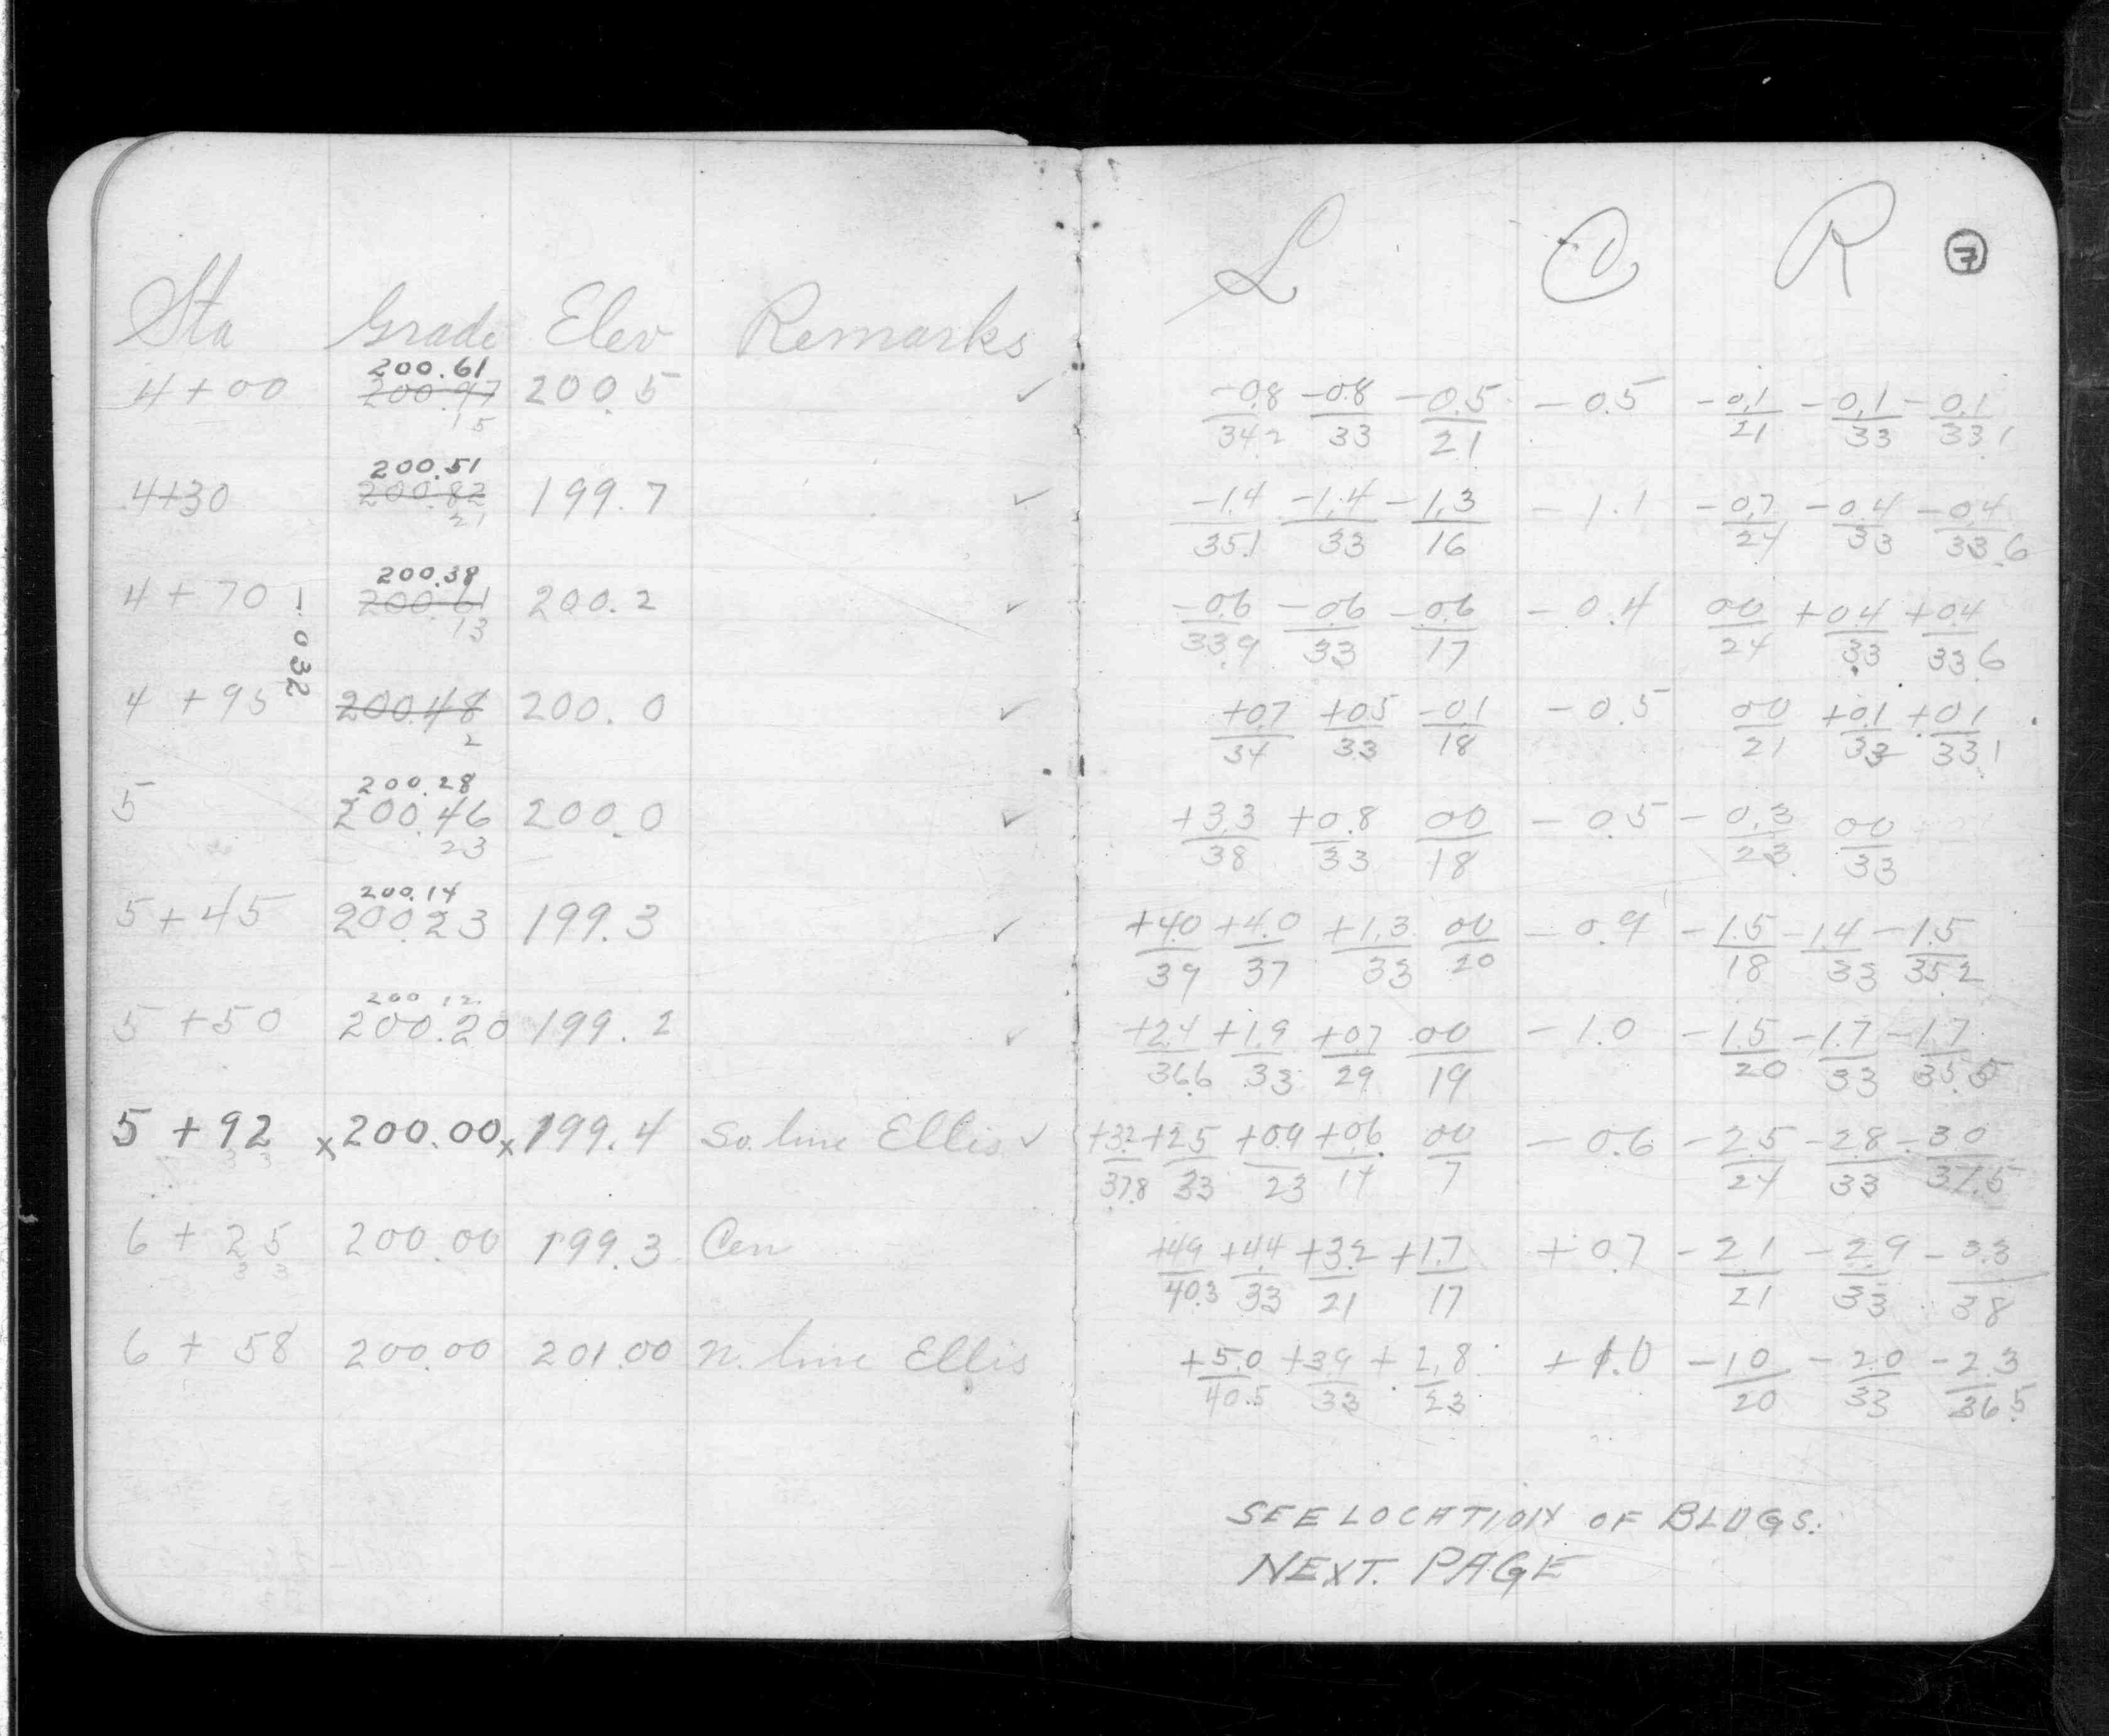 Sta Grade Elev Remarks L C R 7
200.61
4+00 200.97 200.5 ✓ -0.8/34.2 -0.8/33 -0.5/21 -0.5 -0.1/21 -0.1/33 -0.1/33.1
15
200.51
4+30 200.82 199.7 ✓ -1.4/35.1 -1.4/33 -1.3/16 -1.1 -0.7/24 -0.4/33 -0.4/33.6
21
200.38
4+70 200.61 200.2 ✓ -0.6/33.9 -0.6/33 -0.6/17 -0.4 00/24 +0.4/33 +0.4/33.6
13
-.032
4+95 200.48 200.0 ✓ +0.7/34 +0.5/33 -0.1/18 -0.5 00/21 +0.1/33 +0.1/33.1
2
200.28
5 200.46 200.0 ✓ +3.3/38 +0.8/33 00/18 -0.5 -0.3/23 00/33
23
200.14
5+45 200.23 199.3 ✓ +4.0/39 +4.0/37 +1.3/33 00/20 -0.9 -1.5/18 -1.4/33 -1.5/35.2
200.12
5+50 200.20 199.2 ✓ +2.4/36.6 +1.9/33 +0.7/29 00/19 -1.0 -1.5/20 -1.7/33 -1.7/35.5
5+92 x 200.00 x 199.4 So. line Ellis ✓ +3.2/37.8 +2.5/33 +0.9/23 +0.6/14 00/7 -0.6 -2.5/24 -2.8/33 -3.0/37.5
33
6+25 200.00 199.3 Cen +4.9/40.3 +4.4/33 +3.2/21 +1.7/17 +0.7 -2.1/21 -2.9/33 -3.3/38
33
6+58 200.00 201.00 N. line Ellis +5.0/40.5 +3.9/33 +2.8/23 +1.0 -1.0/20 -2.0/33 -2.3/36.5
SEE LOCATION OF BLDGS.
NEXT. PAGE